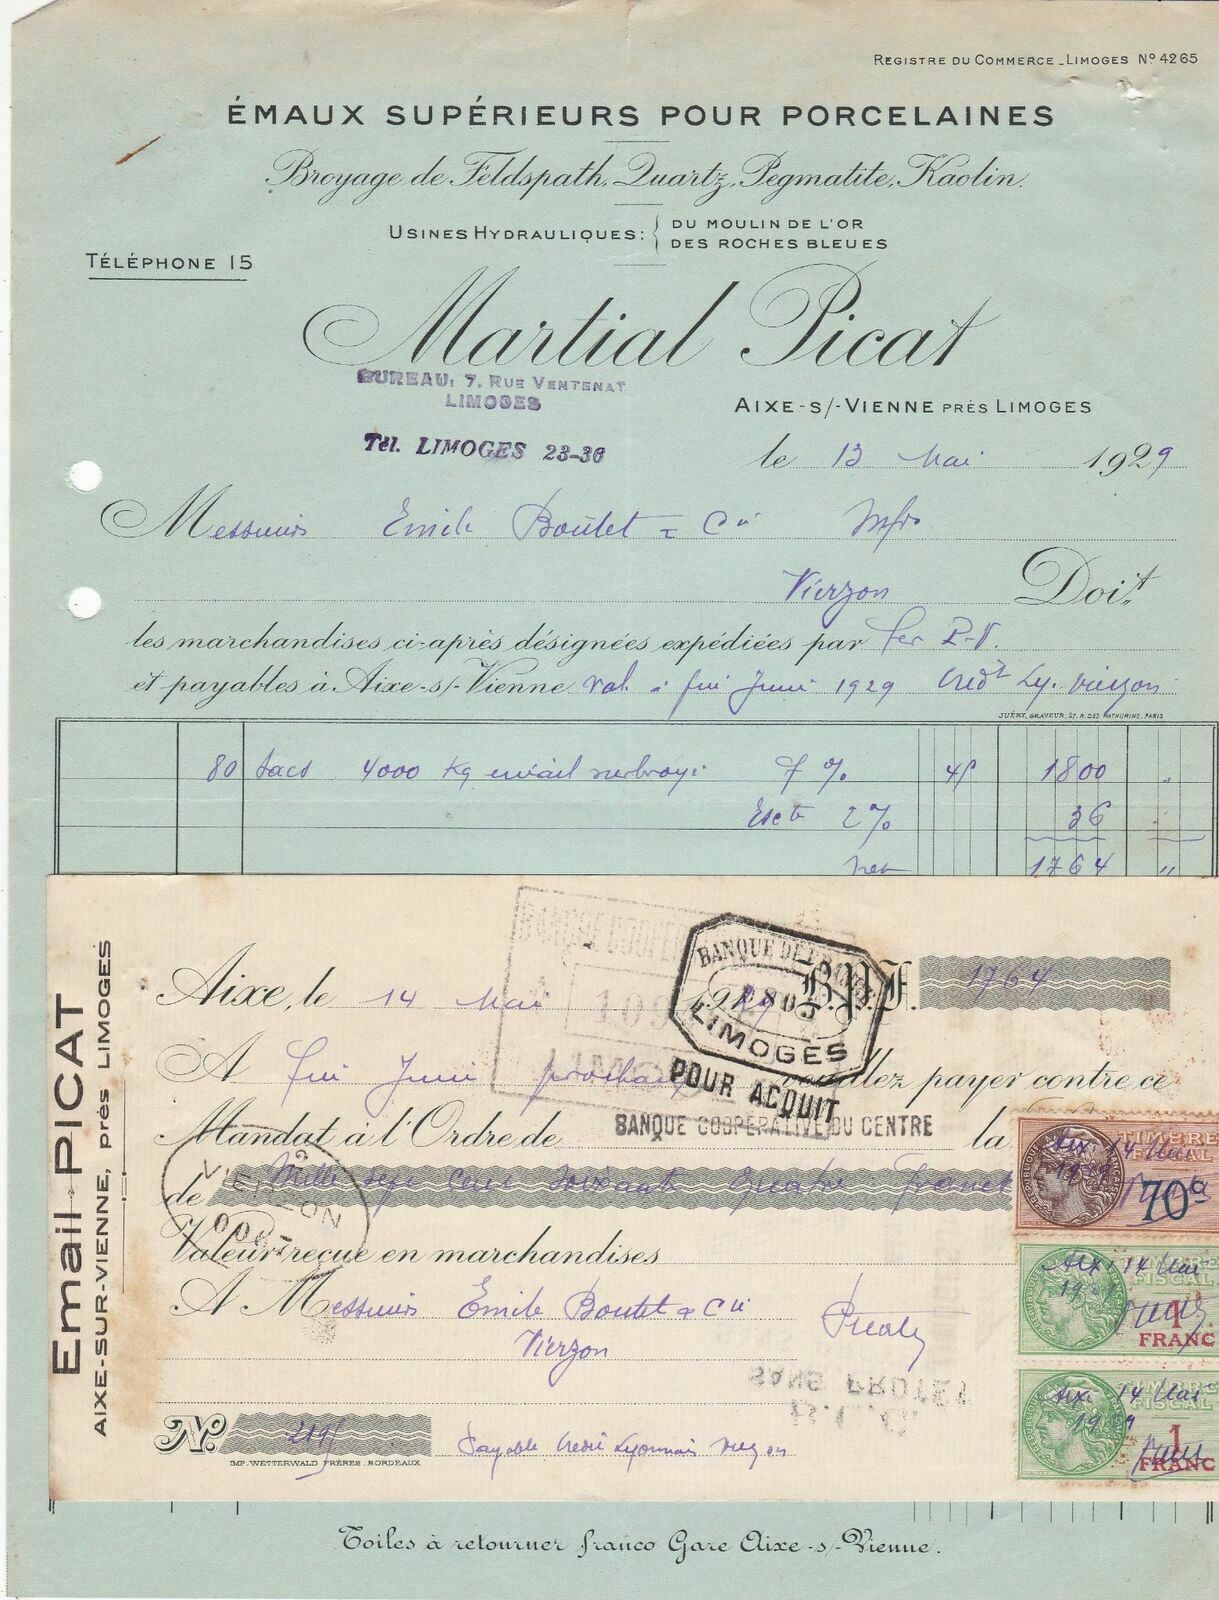 REGISTRE DU COMMERCE_LIMOGES Nº 4265
ÉMAUX SUPÉRIEURS POUR PORCELAINES
Broyage de Feldspath, Quartz, Pegmatite, Kaolin.
USINES HYDRAULIQUES: { DU MOULIN DE L'OR
DES ROCHES BLEUES
TÉLÉPHONE 15
Martial Picat
BUREAU: 7. RUE VENTENAT
LIMOGES
AIXE-S/-VIENNE PRÈS LIMOGES
Tél. LIMOGES 23-36
le 13 Mai 1929
Messieurs Emile Boutet & Cie Mfrs
Vierzon Doit
les marchandises ci-après désignées expédiées par fer P.V.
et payables à Aixe-s/-Vienne val. fin Juin 1929 Crédt Ly. Vierzon
JUÉRY, GRAVEUR, 27, R. DES MATHURINS, PARIS
80 sacs 4000 Kg émail surbroyé 7 % 45 1800 "
Escte 2% 36
net 1764 "
Email-PICAT
AIXE-SUR-VIENNE, près LIMOGES
Aixe, le 14 Mai 1929 B.P.F. 1764
BANQUE DE
LIMOGES
POUR ACQUIT
A fin Juin prochain veuillez payer contre ce
Mandat à l'Ordre de BANQUE COOPÉRATIVE DU CENTRE la
de Mille sept cent soixante quatre Francs
VIERZON
Valeur reçue en marchandises
A Messieurs Emile Boutet & Cie
Vierzon
SANS PROTET
Nº 2195 Payable Crédit Lyonnais Vierzon
IMP. WETTERWALD FRÈRES_BORDEAUX
TIMBRE
FISCAL
Aixe 14 Mai
1929
70c
TIMBRE
FISCAL
Aixe 14 Mai
1929
1
FRANC
TIMBRE
FISCAL
Aixe 14 Mai
1929
1
FRANC
Toiles à retourner franco Gare Aixe-s/-Vienne.